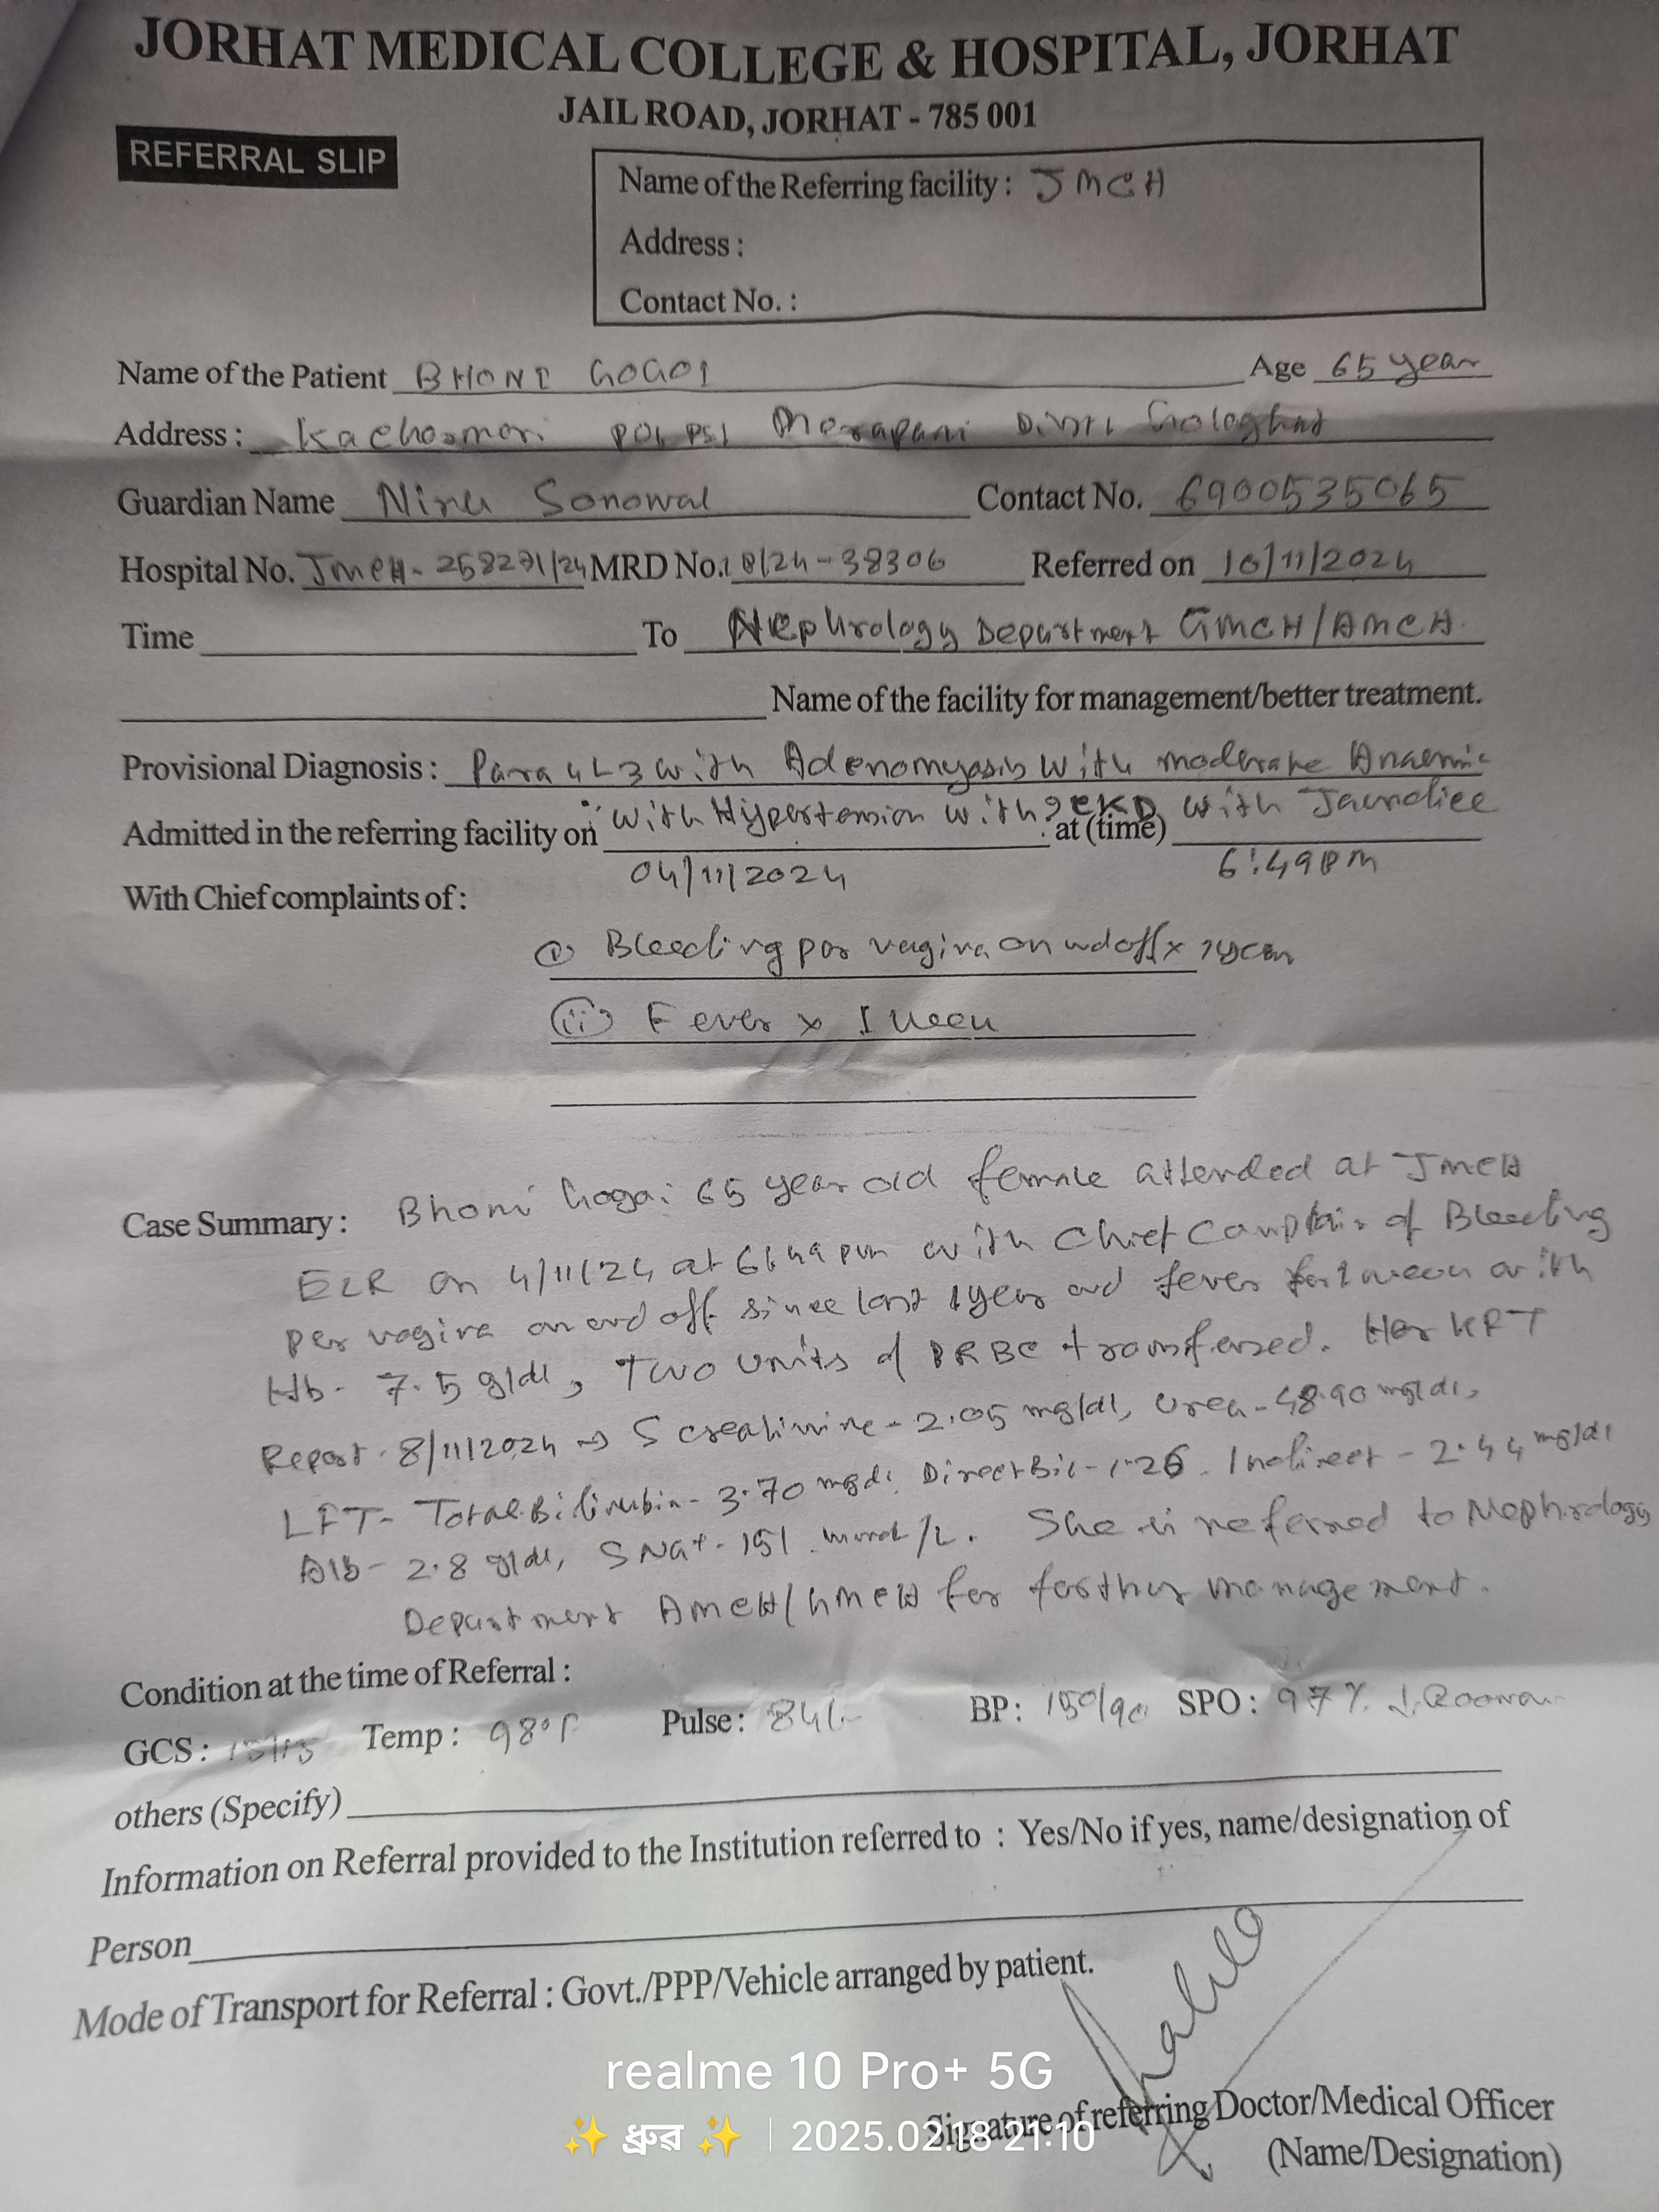 JORHAT MEDICAL COLLEGE & HOSPITAL, JORHAT
JAIL ROAD, JORHAT - 785 001
REFERRAL SLIP
Name of the Referring facility : JMCH
Address :
Contact No. :
Name of the Patient BHONI GOGOI Age 65 year
Address : PO PS Merapani Golaghat
Guardian Name Niru Sonowal Contact No. 6900535065
Hospital No. JMCH- MRD No. 8/24-38306 Referred on 10/11/2024
Time To Nephrology Department GMCH/AMCH.
Name of the facility for management/better treatment.
Provisional Diagnosis : Para 4 L3 with Adenomyosis with moderate Anaemic
with Hypertension with ? CKD with Jaundice
Admitted in the referring facility on at (time)
04/11/2024 6:49 pm
With Chief complaints of :
(i) Bleeding per vagina on and off x 1 year
(ii) Fever x 1 week
Case Summary : Bhoni Gogoi 65 year old female attended at JMCH
on 4/11/24 at 6:49 pm with Chief Complain of Bleeding
per vagina on and off since last 1 year and fever for 1 week with
Hb- 7.5 g/dl, Two units of PRBC transfersed. Her KFT
Report. 8/11/2024 → S creatinine - 2.05 mg/dl, Urea - 48.90 mg/dl,
LFT- Total Bilirubin - 3.70 mgdl, Direct Bil - 1.26. Indireet - 2.44 mg/dl
Alb- 2.8 g/dl, S Na+ - 151 mmol/L. She is referred to Nephrology
Department AMCH/GMCH for farther management.
Condition at the time of Referral :
GCS : 15/15 Temp : 98°F Pulse : 84/- BP : 150/90 SPO : 97%
others (Specify)
Information on Referral provided to the Institution referred to : Yes/No if yes, name/designation of
Person
Mode of Transport for Referral : Govt./PPP/Vehicle arranged by patient.
realme 10 Pro+ 5G
Signature of referring Doctor/Medical Officer
✨ ধ্ৰুৱ ✨ | 2025.02.18 21:10
(Name/Designation)